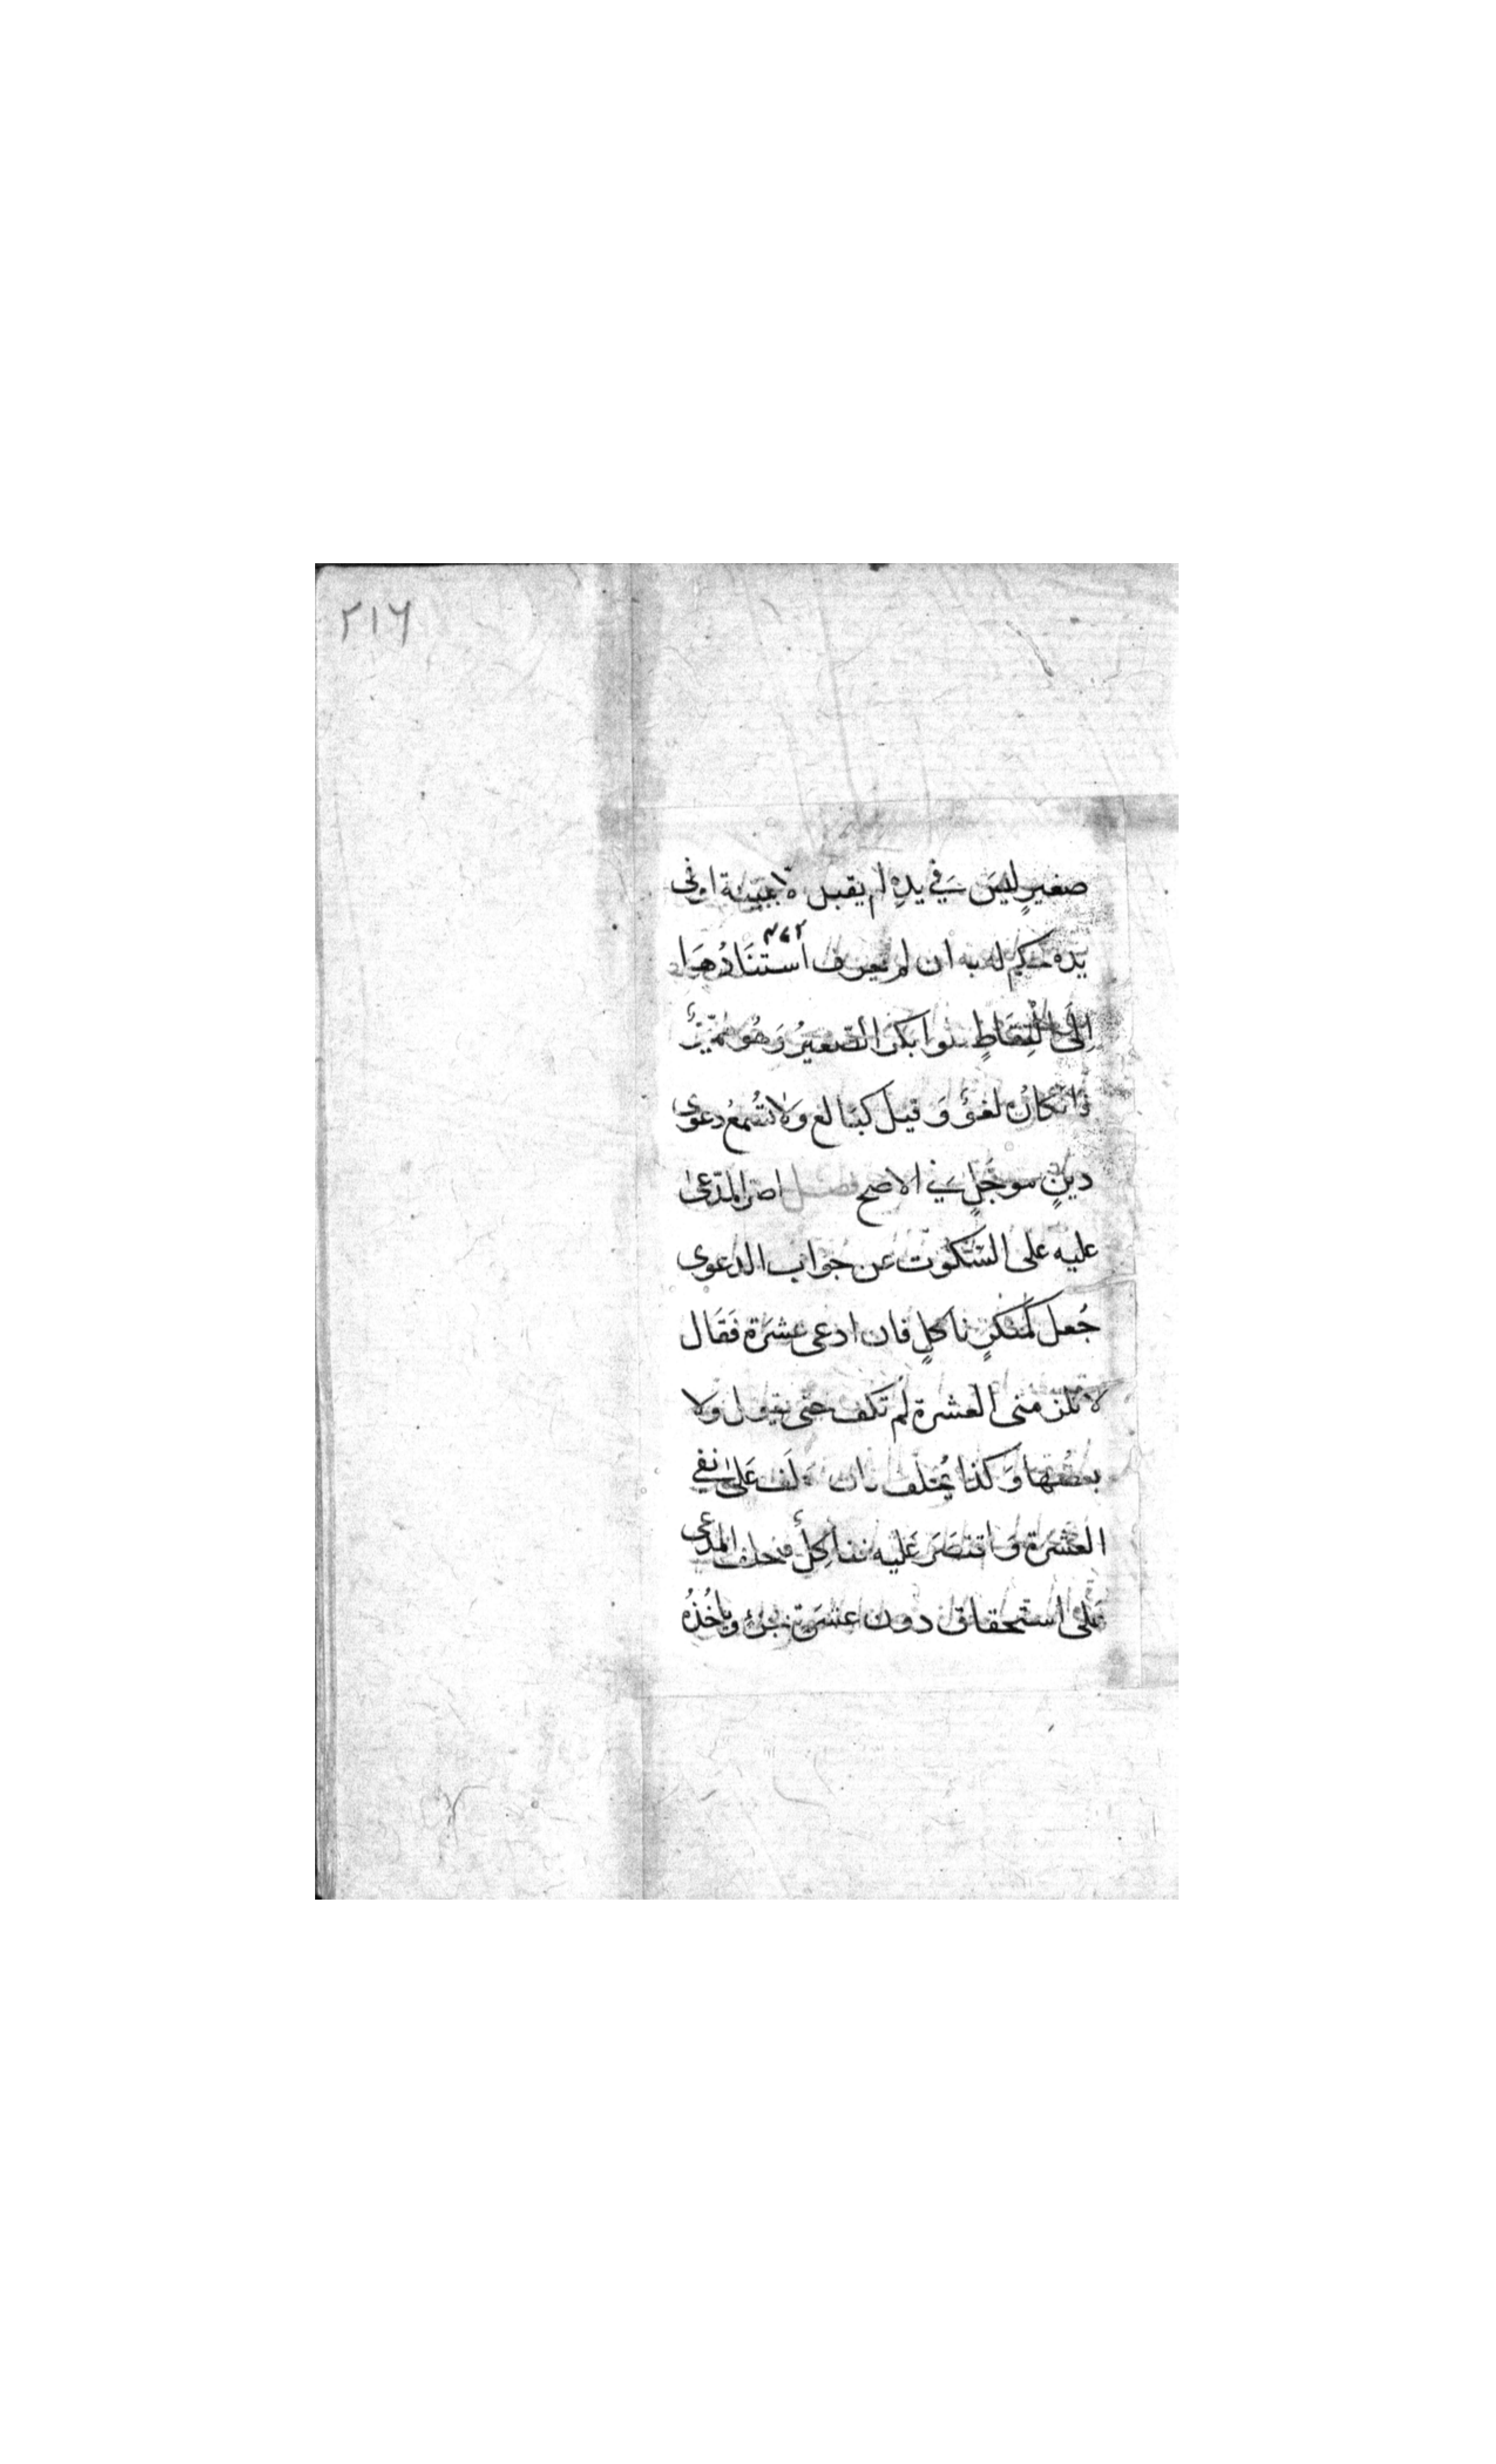 ٢١٦
صغيرٍ ليسَ في يدِهِ لم يقبل الا ببينة او في
يده حكم له به ان لم يعرف استنَادُهَا
إلَى الْتِقَاطٍ فلو انكر الصغيرُ وَهُوَ مميّزٌ
فانكارُه لغوٌ وَ قيلَ كبَالغ وَلاتُسمعُ دعوى
دينٍ موجَلٍ في الاصح فصل اصر المدّعى
عليه على السّكوت عن جواب الدعوى
جُعل كمنكرٍ ناكلٍ فان ادعى عشرَة فقَال
لا تلزمنى العشرة لم تكف حتى يقول ولا
بعضُها وَ كذا يُحلف فان حَلَف عَلى نفي
العشرَة وَ اقتصَرَ عَليه فناكِلٌ فيحلف المدعى
عَلى استحقاق دون عشرَة بجزء وياخُذُهُ